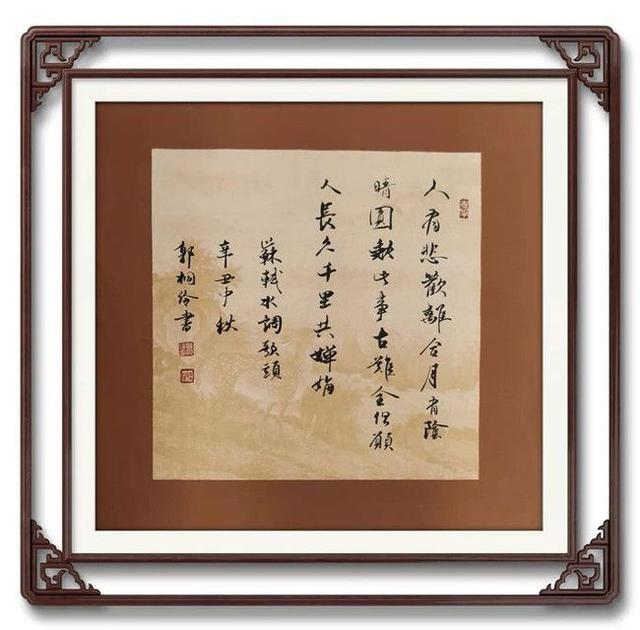 人有悲歡離合月有陰
晴圓缺此事古難全但願
人長久千里共嬋娟
蘇軾水調歌頭
辛丑中秋
郭桐伶書